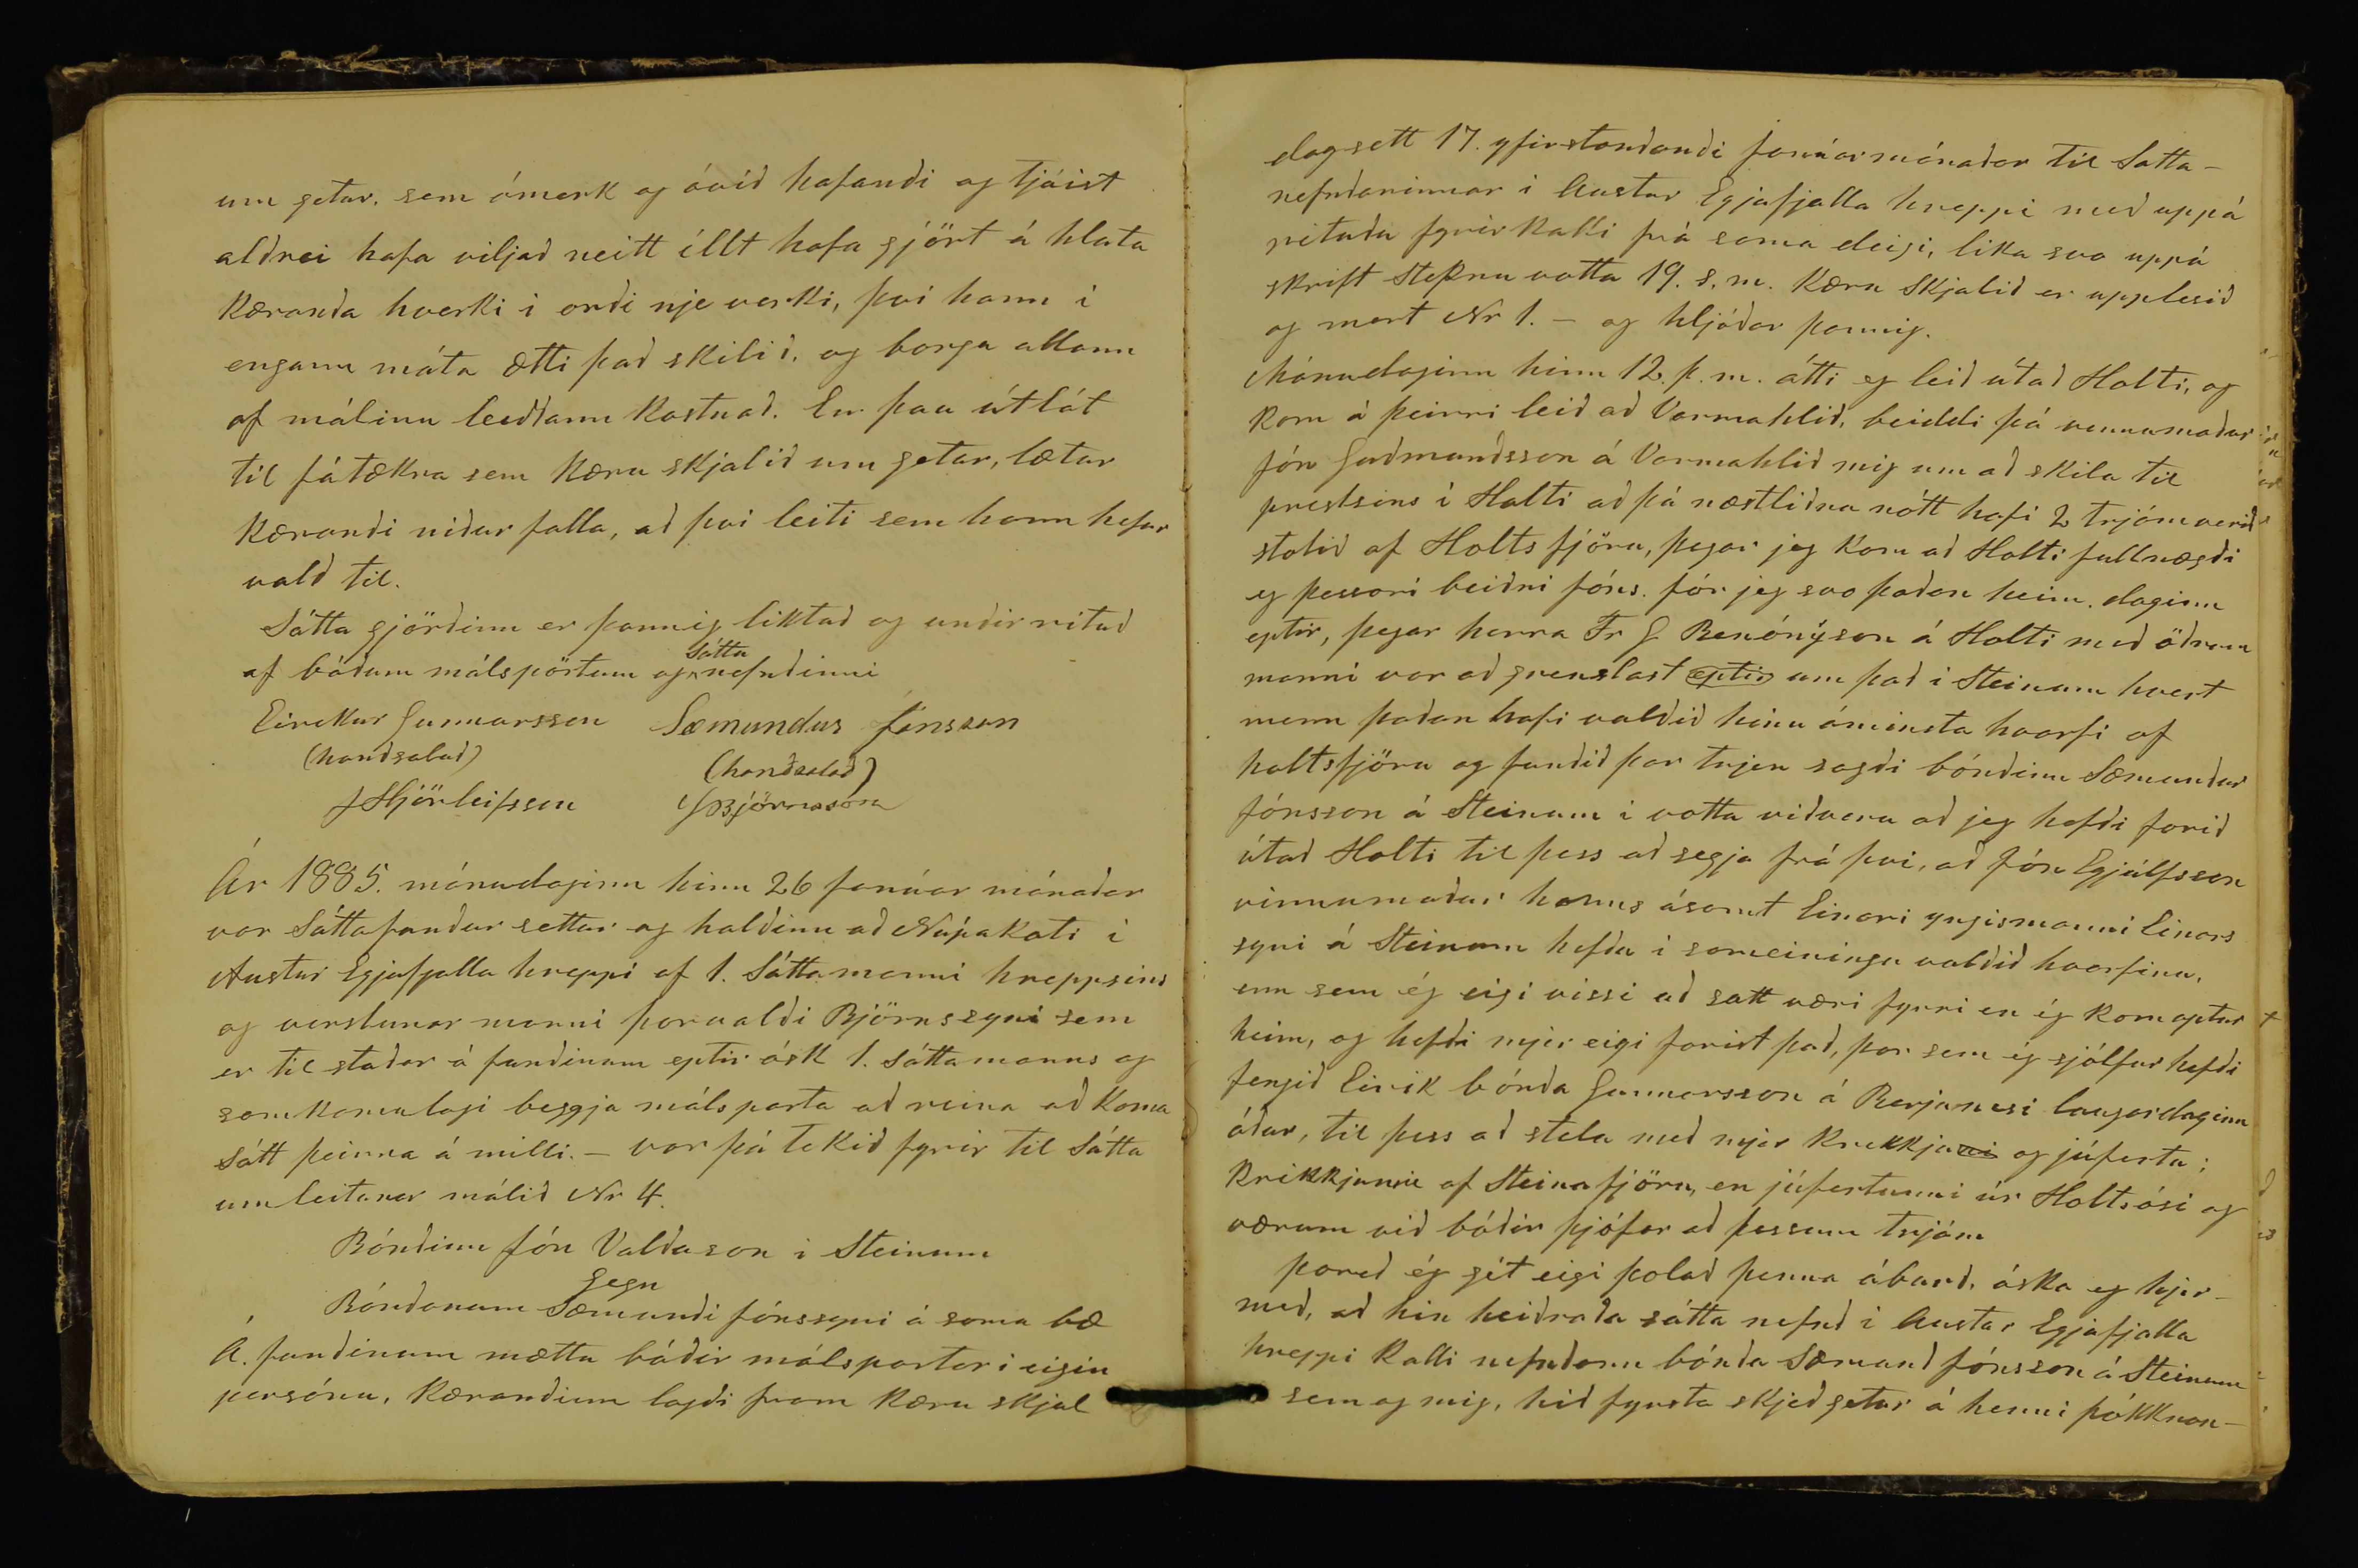 um getur. sem ómerk og óvið hafandi og tjáist
aldrei hafa viljað neitt illt hafa gjört á hluta
Kæranda hverki i orði nje verki, þvi hann i
engann máta ætti það skilið, og borga allann
af málinu leiddann Kostnað. En þau útlát
til fátækra sem Kæru skjalið um getur, lætur
Kærandi niður falla, að þvi leiti sem hann hefur
vald til.
Sátta gjörðinn er þannig liktað og undir ritað
af báðum málspörtum og Sátta nefndinni
Eirekur Gunnarsson Sæmundur Jónsson
(handsalað) (handsalað)
J Hjörleifsson Þ Björnsson
Ár 1885. mánudaginn hinn 26 Janúar mánaðar
var Sáttafundur settur og haldinn að Núpakoti i
Austur Eyjafjalla hreppi af 1. Sáttamanni hreppsins
og verslunar manni þorvaldi Björnssyni sem
er til staðar á fundinum eptir ósk 1. Sáttamanns og
samkomulagi beggja málsparta að reina að Koma
Sátt þeirra á milli. – var þá tekið fyrir til Sátta
umleitunar málið Nr 4.
Bóndinn Jón Valdason i Steinum
Gegn
Bóndanum Sæmundi Jónssyni á sama bæ
Á. fundinum mættu báðir málspartar i eigin
persónu, Kærandinn lagði fram Kæru skjal
dagsett 17. yfirstandandi Janúarmánaðar til Satta-
nefndarinnar i Austur Eyjafjalla hreppi með uppá
rituðu fyrirkalli frá sama deigi, lika svo uppá
skrift stefnu votta 19. s. m. Kæru Skjalið er upplesið
og mert Nr 1. – og hljóðar þannig.
Mánudaginn hinn 12. þ. m. átti eg leið útað Holti, og
Kom á þeirri leið að Varmahlið, beiddi þá vinnumaður
Jón Guðmundsson á Varmahlið mig um að skila til
prestsins i Holti að þá næstliðna nótt hafi 2 trjám verið
stolið af Holts fjöru, þegar jeg Kom að Holti fullnægði
eg þessari beiðni Jóns. fór jeg svo þaðan heim. daginn
eptir, þegar herra Fr G Benónýson á Holti með öðrum
manni var að grenslast eptir um það i Steinum hvert
menn þaðan hafi valdið hinu áminsta hvarfi af
holtsfjöru og fundið þar trjen sagði bóndinn Sæmundur
Jónsson á Steinum i votta viðveru að jeg hefði farið
útað Holti til þess að segja frá þvi, að Jón Eyjúlfsson
vinnumaður hanns ásamt Einari yngismanni Einars
syni á Steinum hefðu i sameiningu valdið hvarfinu,
enn sem ég eigi vissi að satt væri fyrri en ég Kom aptur
heim, og hefði mjer eigi farist það, þar sem ég sjálfur hefði
fengið Eirik bónda Gunnarsson á Berjanesi laugardaginn
áður, til þess að stela með mjer Krekkjuni og júfertu;
Krikkjunni af Steinafjöru, en júfertunni úr Holtsósi og
værum við báðir þjófar að þessum trjám
þareð ég gét eigi þolað þenna áburð. óska eg hjer-
með, að hin heiðraða sátta nefnd i Austur Eyjafjalla
hreppi Kalli nefndann bónda Sæmund Jónsson á Steinum
sem og mig, hið fyrsta skjeð getur á henni þókknan-